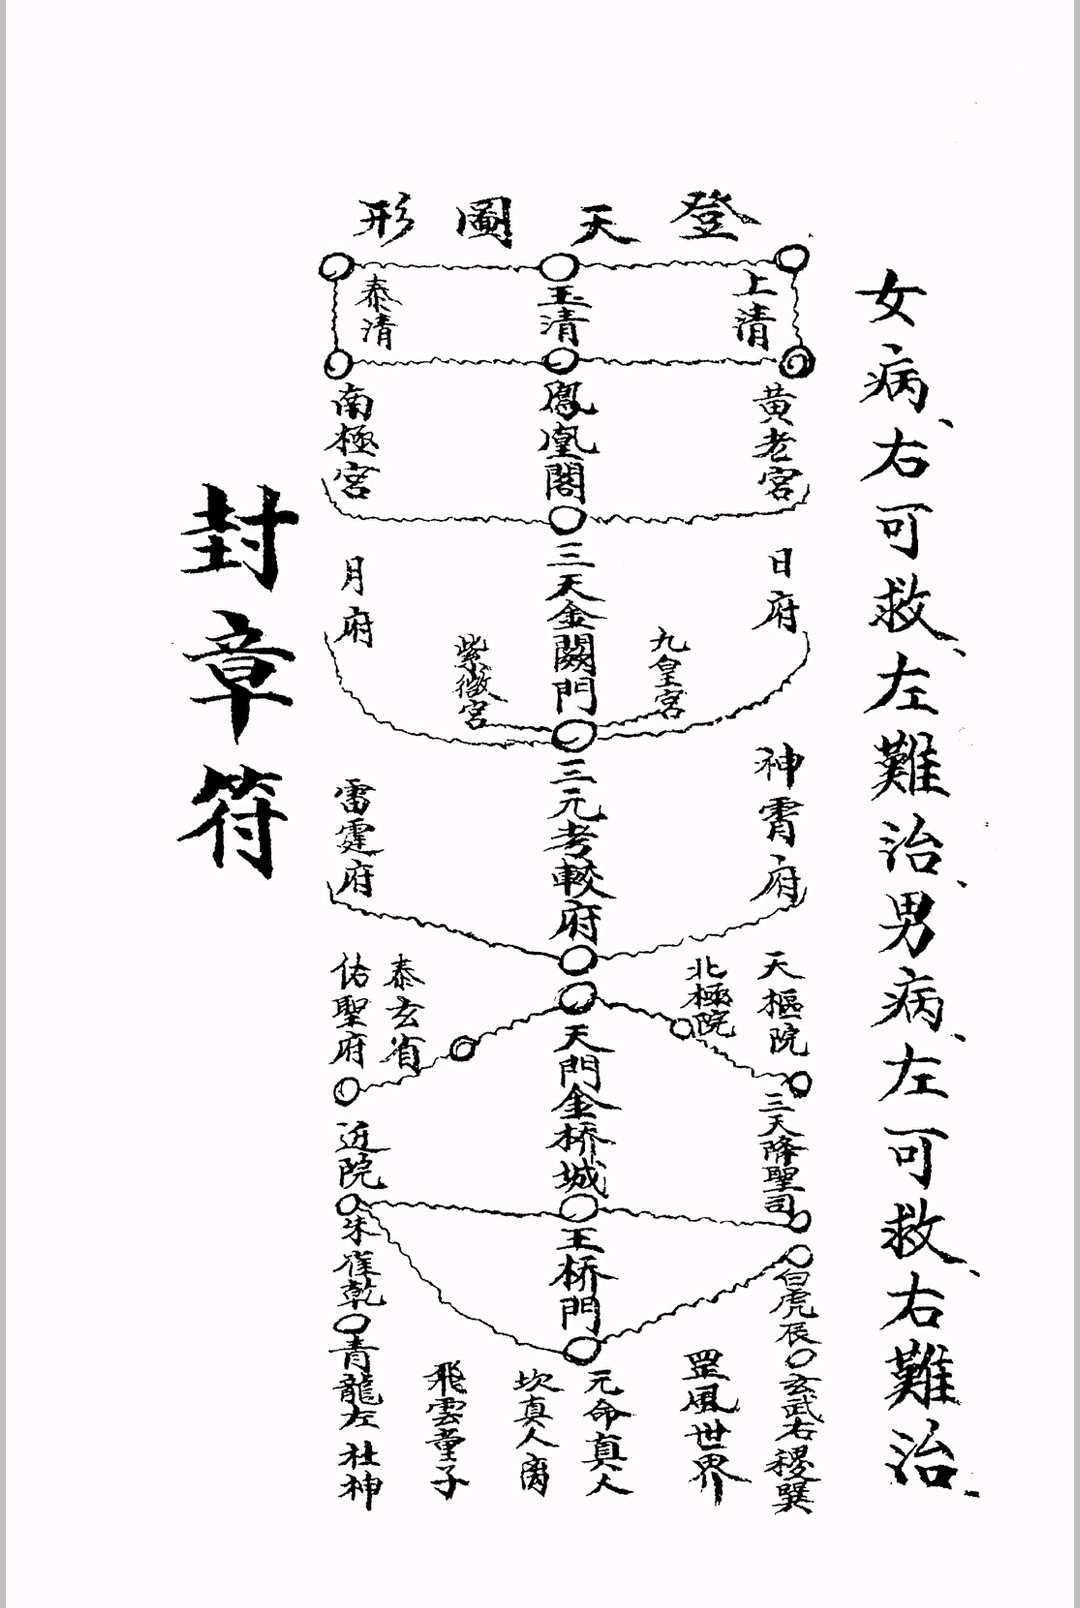 女病、右可救、左難治、男病、左可救、右難治、
登天圖形
上清
玉清
泰清
黃老宮
鳳凰閣
南極宮
日府
九皇宮
三天金闕門
紫微宮
月府
神霄府
三元考較府
雷霆府
天樞院
北極院
天門金桥城
泰玄省
佑聖府
三天降聖司
王桥門
近院
白虎辰
玄武右稷巽
罡風世界
元命真人
坎真人离
飛雲童子
朱雀乾
青龍左社神
封章符